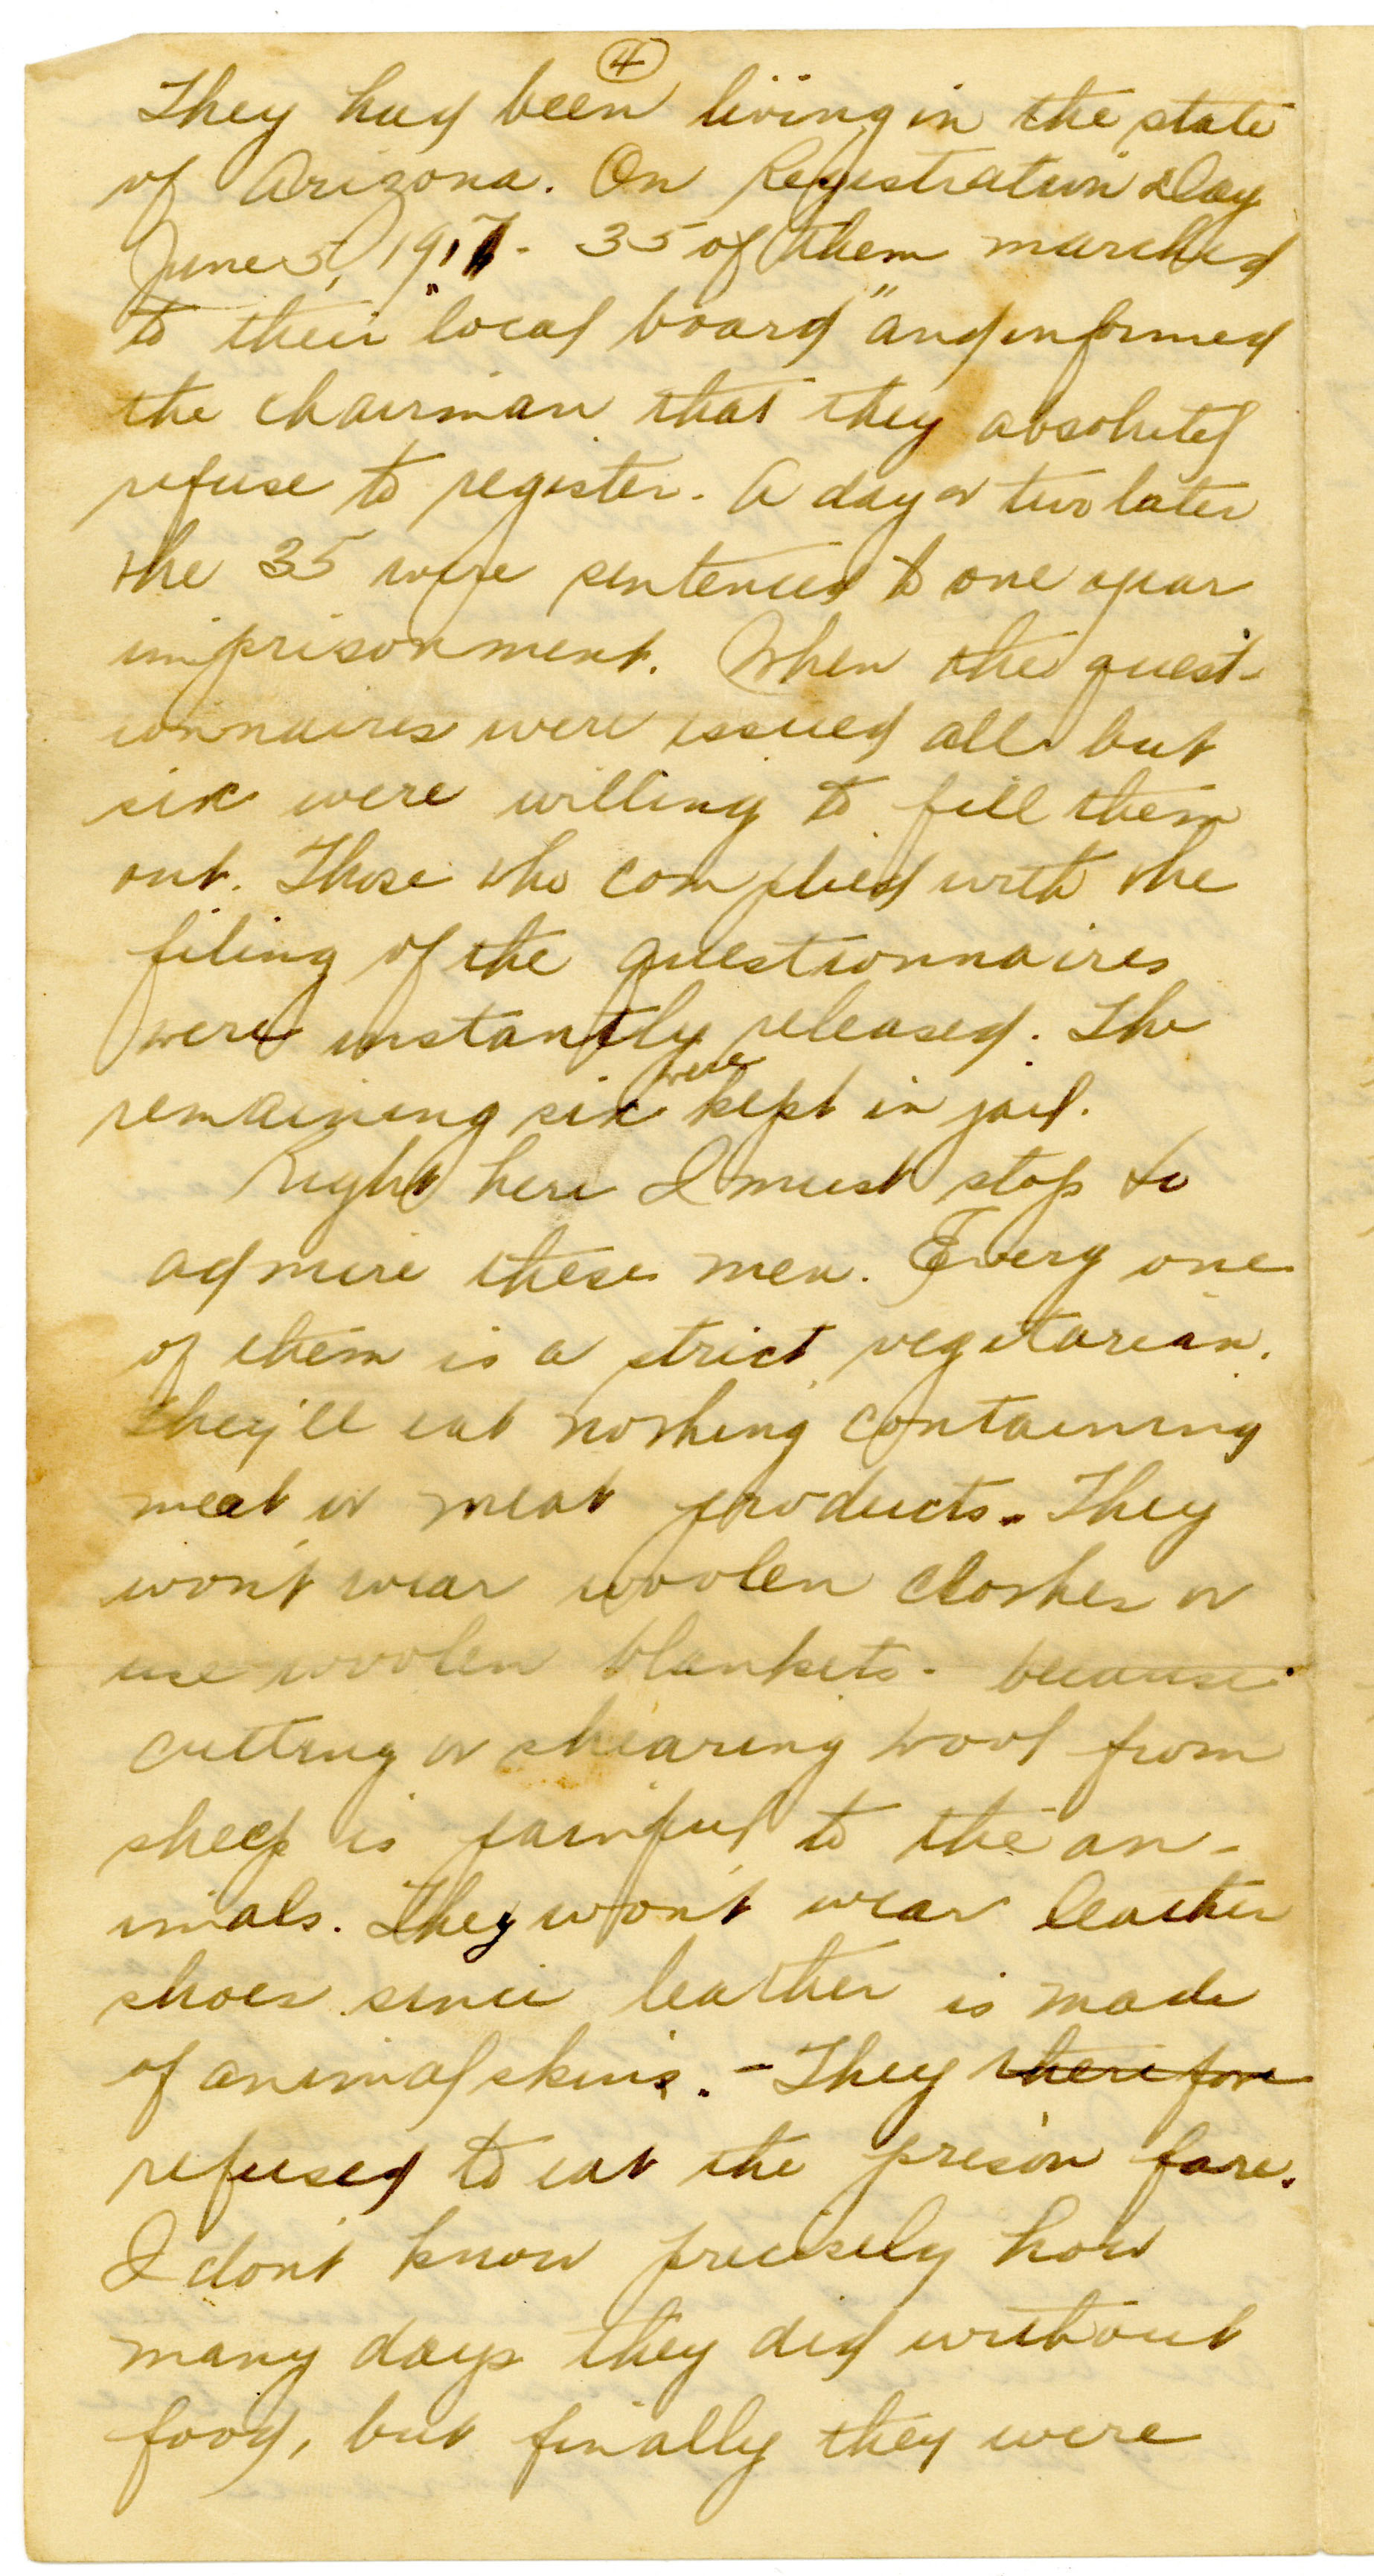 4
They had been living in the state
of Arizona. On Registration Day
June 5, 1917 - 35 of them marched
to their "local board" and informed
the chairman that they absolutely
refuse to register. A day or two later
the 35 were sentenced to one year
imprisonment. When the quest-
ionnaires were issued all but
six were willing to fill them
out. Those who complied with the
filing of the questionnaires
were instantly released. The
remaining six were kept in jail.
Right here I must stop to
admire these men. Every one
of them is a strict vegetarian.
they'll eat nothing containing
meat or meat products. They
won't wear woolen clothes or
use woolen blankets - because
cutting or shearing wool from
sheep is painful to the an-
imals. They won't wear leather
shoes since leather is made
of animal skins. - They therefore
refused to eat the prison fare.
I don't know precisely how
many days they did without
food, but finally they were